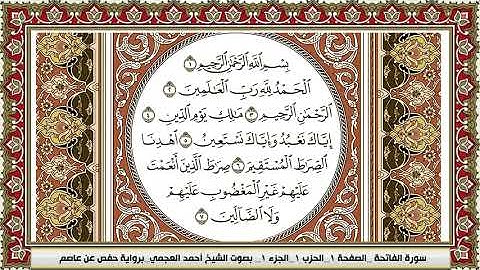 بِسْمِ اللَّهِ الرَّحْمَٰنِ الرَّحِيمِ ١
الْحَمْدُ لِلَّهِ رَبِّ الْعَالَمِينَ ٢
الرَّحْمَٰنِ الرَّحِيمِ ٣ مَالِكِ يَوْمِ الدِّينِ ٤
إِيَّاكَ نَعْبُدُ وَإِيَّاكَ نَسْتَعِينُ ٥ اهْدِنَا
الصِّرَاطَ الْمُسْتَقِيمَ ٦ صِرَاطَ الَّذِينَ أَنْعَمْتَ
عَلَيْهِمْ غَيْرِ الْمَغْضُوبِ عَلَيْهِمْ
وَلَا الضَّالِّينَ ٧
سورة الفاتحة _الصفحة ١ _الحزب ١ _الجزء ١ _ بصوت الشيخ أحمد العجمي برواية حفص عن عاصم